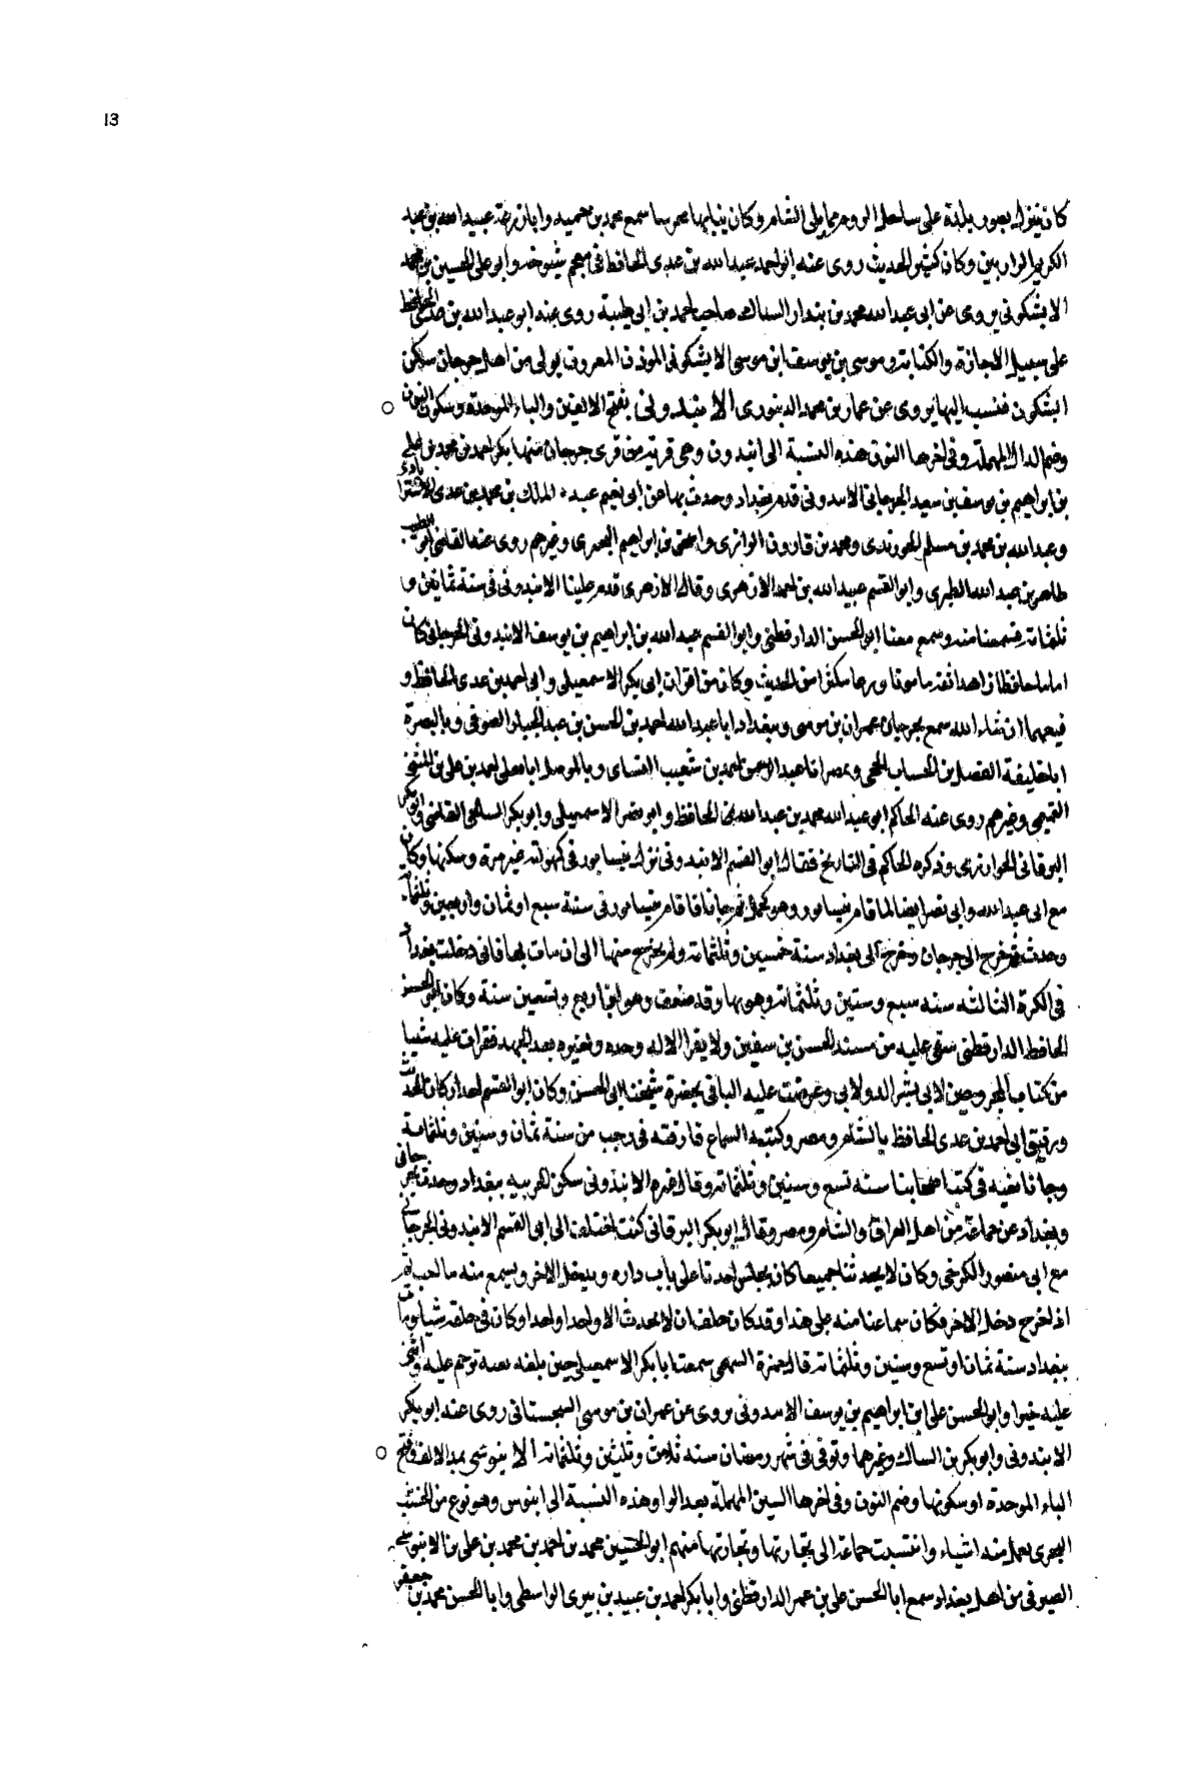 13
كان ينزل بصور بلدة على ساحل الروم مما يلي الشام وكان بنيابها سمع محمد بن حميد وابا زرعة عبيد الله بن عبد
الكريم الرازيين وكان كثير الحديث روى عنه ابو احمد عبد الله بن عدى الحافظ في معجم شيوخه وابو على الحسين بن محمد
الابشكونى يروى عن ابى عبد الله محمد بن بندار السباك صاحب احمد بن ابى طيبة روى عنه ابو عبد الله بن عدى الحافظ
على سبيل الاجازة والكتابة وموسى بن يوسف بن موسى الابشكونى الموذن المعروف من اهل جرجان سكن
ابشكون فنسب اليها يروى عن عمار بن محمد الدينورى الابندونى بفتح الالفين والباء الموحدة وسكون النون
وضم الدال المهملة وفى اخرها النون هذه النسبة الى ابندون وهى قرية من قرى جرجان منها بكر احمد بن محمد بن على
بن ابراهيم بن يوسف بن سعيد الجرجانى الابندونى قدم بغداد وحدث بها عن ابى نعيم عبد الملك بن محمد بن عدى الاستراباذى
وعبد الله بن محمد بن مسلم ومحمد بن قارون الرازى بن ابراهيم البحرى وغيرهم روى عنه القاضى ابو الطيب
طاهر بن عبد الله الطبرى وابو القسم عبيد الله بن احمد الازهرى وقال الازهرى قدم علينا الابندونى فى سنة ثمانين و
ثلثماته فسمعنا منه وسمع معنا ابو الحسن الدارقطنى وابو القسم عبد الله بن ابراهيم بن يوسف الابندونى الجرجانى كان
اماما حافظا زاهدا ثقة مامونا ورعا مكثرا من الحديث وكان من اقران ابى بكر الاسمعيلى وابى احمد بن عدى الحافظ و
فيهما ان شاء الله سمع بجرجان عمران بن موسى وببغداد ابا عبد الله احمد بن الحسن بن عبد الجبار الصوفى وبالبصرة
ابا خليفة الفضل بن الحباب الجمحى وبمصر ابا عبد الرحمن احمد بن شعيب النساى وبالموصل ابا يعلى احمد بن على بن المثنى
التميمى وغيرهم روى عنه الحاكم ابو عبد الله محمد بن عبد الله الحافظ وابو الاسمعيلى وابو بكر القاضى وابو بكر
البرقانى الخوارزمى وذكره الحاكم فى التاريخ فقال ابو القسم الابندونى نزل نيسابور فى كهولته غير مرة وسكنها وكان
مع ابى عبد الله وابى نصر ايضا لما اقام نيسابور اقام بنيسابور فى سنة سبع او ثمان واربعين وثلثماته
وحدث ثم خرج الى جرجان وخرج الى بغداد سنة خمسين وثلثماته ولم يخرج منها الى ان مات بها فانى دخلت بغداد
فى الكرة الثالثه سنه سبع وستين وثلثماته وهو بها وقد ضعف وهو ابن اربع وتسعين سنة وكان ابو الحسن
الحافظ الدارقطنى عليه من مسند الحسن بن سفين ولا يقرا الا له وحده ولغيره بعد الجهد فقرات عليه شيا
من كتاب المجروحين لابى بشر الدولابى وعرضت عليه الباقى بحضرة شيخنا ابى الحسن وكان ابو القسم احد اركان الحديث
ورفيق ابى احمد بن عدى الحافظ بالشام ومصر وكتبه السماع فارقته فى رجب من سنة ثمان وستين وثلثماته
وجانا نعيه فى كتب اصحابنا سنه تسع وستين وثلثماته وقال غيره الابندونى سكن الحربيه ببغداد وحدث بجرجان
وبغداد عن جماعة من اهل العراق والشام ومصر وقال ابو بكر البرقانى كنت اختلف الى ابى القسم الابندونى الجرجانى
مع ابى منصور الكرخى وكان لا يحدثنا جميعا كان يجلس احدنا على باب داره ويدخل الاخر ويسمع منه ما احب ثم
اذا خرج دخل الاخر فكان سماعنا منه على هذا وقد كان حلف ان لا يحدث الا واحدا واحدا وكان فى خلقه شى ومات
ببغداد سنة ثمان او تسع وستين وثلثماته قال حمزة السهمى سمعت ابا بكر الاسمعيلى حين بلغه نعيه ترحم عليه واثنى
عليه خيرا وابو الحسن على بن ابراهيم بن يوسف الابندونى يروى عن عمران بن موسى السجستانى روى عنه ابو بكر
الابندونى وابو بكر بن السباك وغيرهما وتوفى فى شهر رمضان سنه ثلاث وثلثين وثلثماته الابنوسى بمد الالف وفتح
الباء الموحدة او سكونها وضم النون وفى اخرها السين المهملة بعد الواو هذه النسبة الى ابنوس وهو نوع من الخشب
البحرى يعمل منه اشياء وانتسبت جماعة الى تجارتها ونجارتها منهم ابو الحسين محمد بن احمد بن محمد بن على بن الابنوسى
الصيرفى من اهل بغداد سمع ابا الحسن على بن عمر الدارقطنى وابا بكر احمد بن عبيد بن بيرى الواسطى وابا الحسن محمد بن جعفر